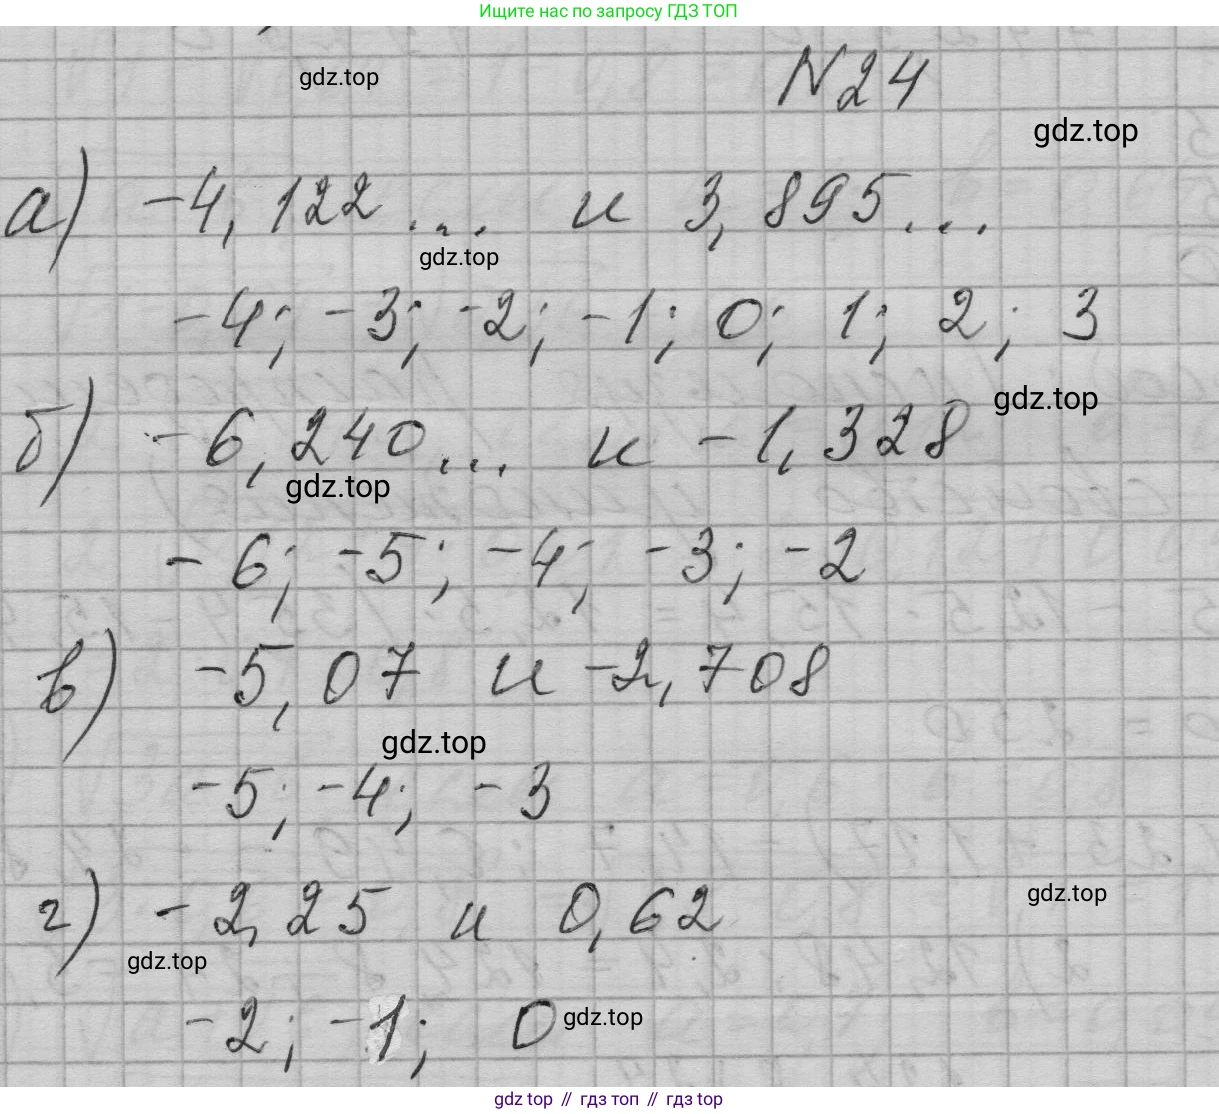 Ищите нас по запросу ГДЗ ТОП
gdz.top
N24
gdz.top
а) -4,122... и 3,895...
gdz.top
-4; -3; -2; -1; 0; 1; 2; 3
gdz.top
б) -6,240... и -1,328
gdz.top
-6; -5; -4; -3; -2
в) -5,07 и -2,708
gdz.top
-5; -4; -3
gdz.top
г) -2,25 и 0,62
gdz.top
-2; -1; 0
gdz.top
gdz top // гдз топ // гдз top